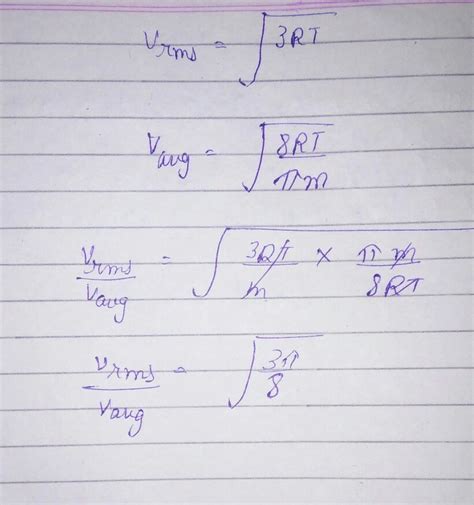 Vrms = √3RT
Vavg = √8RT/πm
Vrms/Vavg = √3RT/m × πm/8RT
Vrms/Vavg = √3π/8